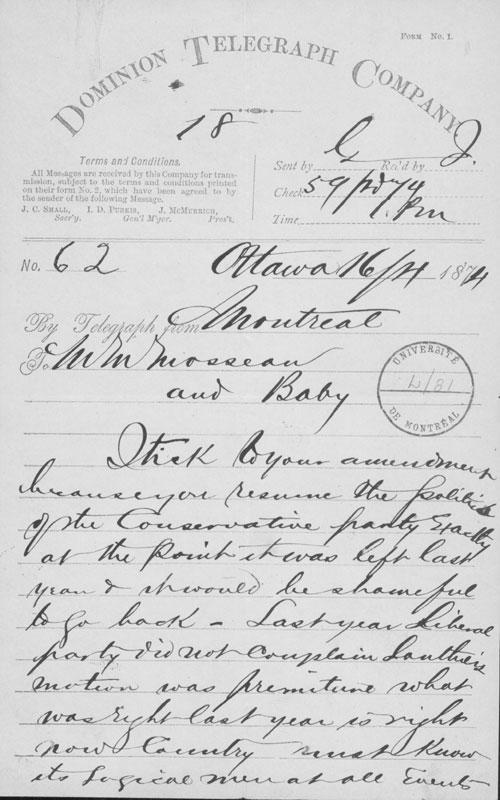 FORM No. 1.
DOMINION TELEGRAPH COMPANY
18
Terms and Conditions.
All Messages are received by this Company for trans-
mission, subject to the terms and conditions printed
on their form No. 2, which have been agreed to by
the sender of the following Message.
J. C. SMALL, I. D. PURKIS, J. McMURRICH,
Secr'y. Gen'l M'ger. Pres't.
Sent by G Rec'd by J.
Check 59 pd 74
Time 1. Pm
No. 62 Ottawa 16/4 1874
By Telegraph from Montreal
To Mosseau
and Baby
UNIVERSITÉ
DE MONTRÉAL
Stick to your amendment
because you resume the politics
of the Conservative party exactly
at the point it was left last
year & it would be shameful
to go back - Last year Liberal
party did not complain
motion was premiture what
was right last year is right
now Country must know
its Logical men at all Events